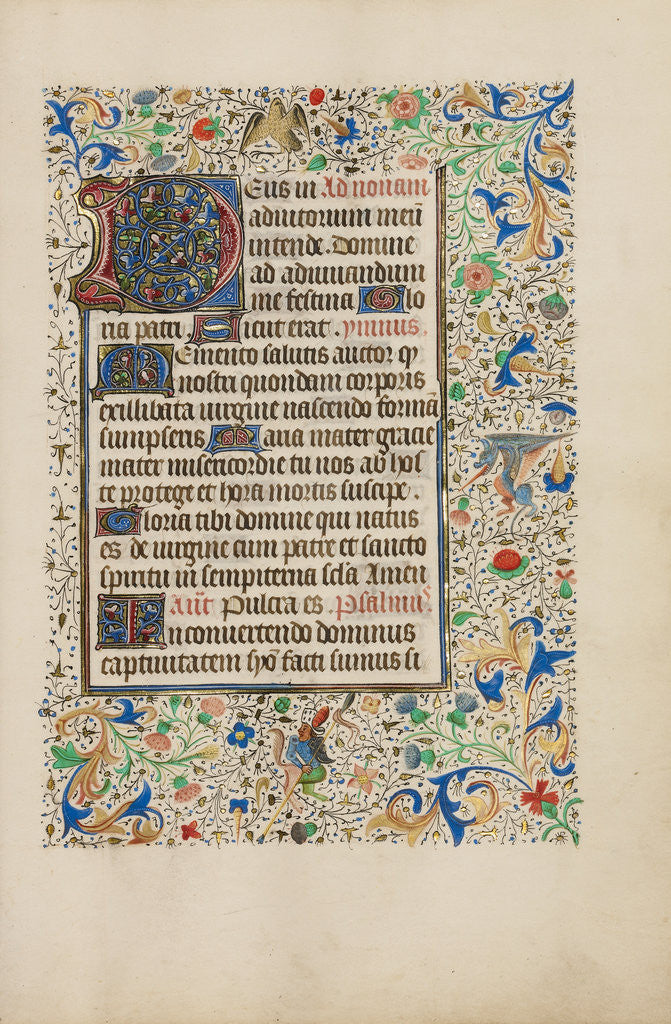 Deus in Ad nonam
adiutorium meũ
intende. Domine
ad adiuuandum
me festina Glo
ria patri. Sicut erat. ymnus.
Memento salutis auctor qꝫ
nostri quondam corporis
ex illibata uirgine nascendo formã
sumpseris Maria mater gracie
mater misericordie tu nos ab hos
te protege et hora mortis suscipe.
Gloria tibi domine qui natus
es de uirgine cum patre et sancto
spiritu in sempiterna sclã Amen
añt Pulcra es. Psalmuˢ.
In conuertendo dominus
captiuitatem syõ facti sumus si